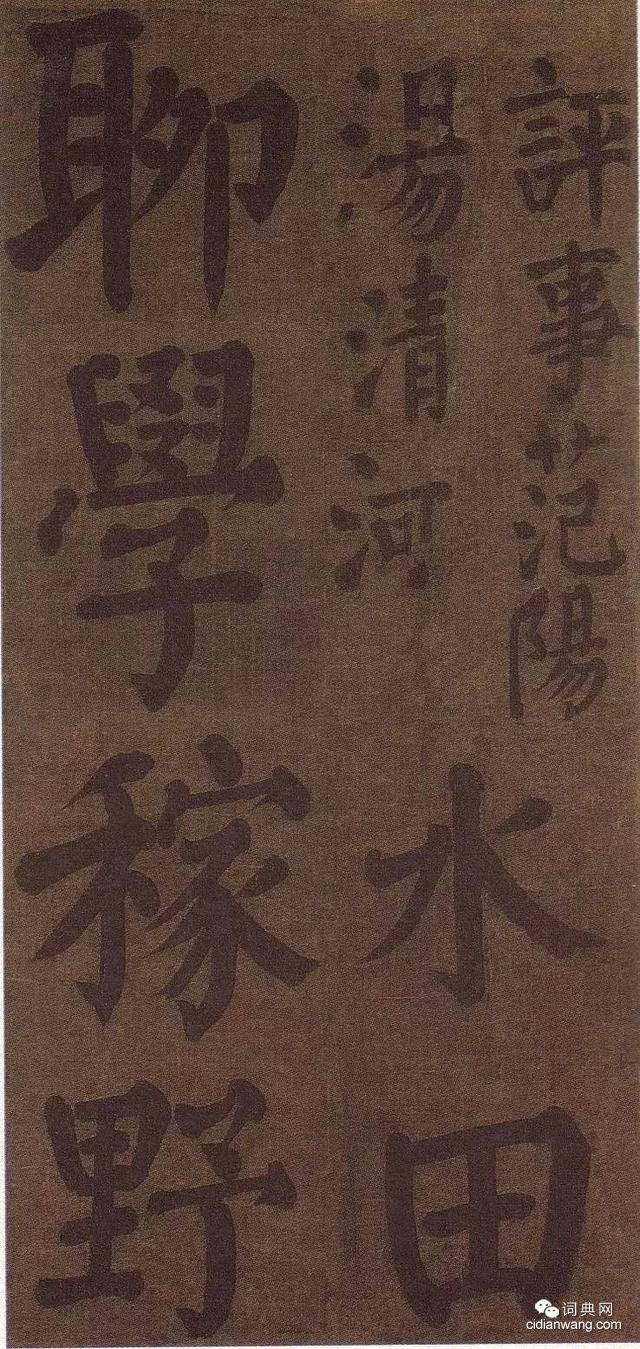 評事范陽
湯清河
水田
聊學稼野
词典网
cidianwang.com